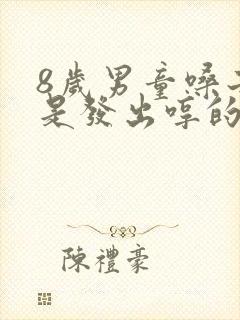 8歲男童嗓
是發出哼的
陳禮豪